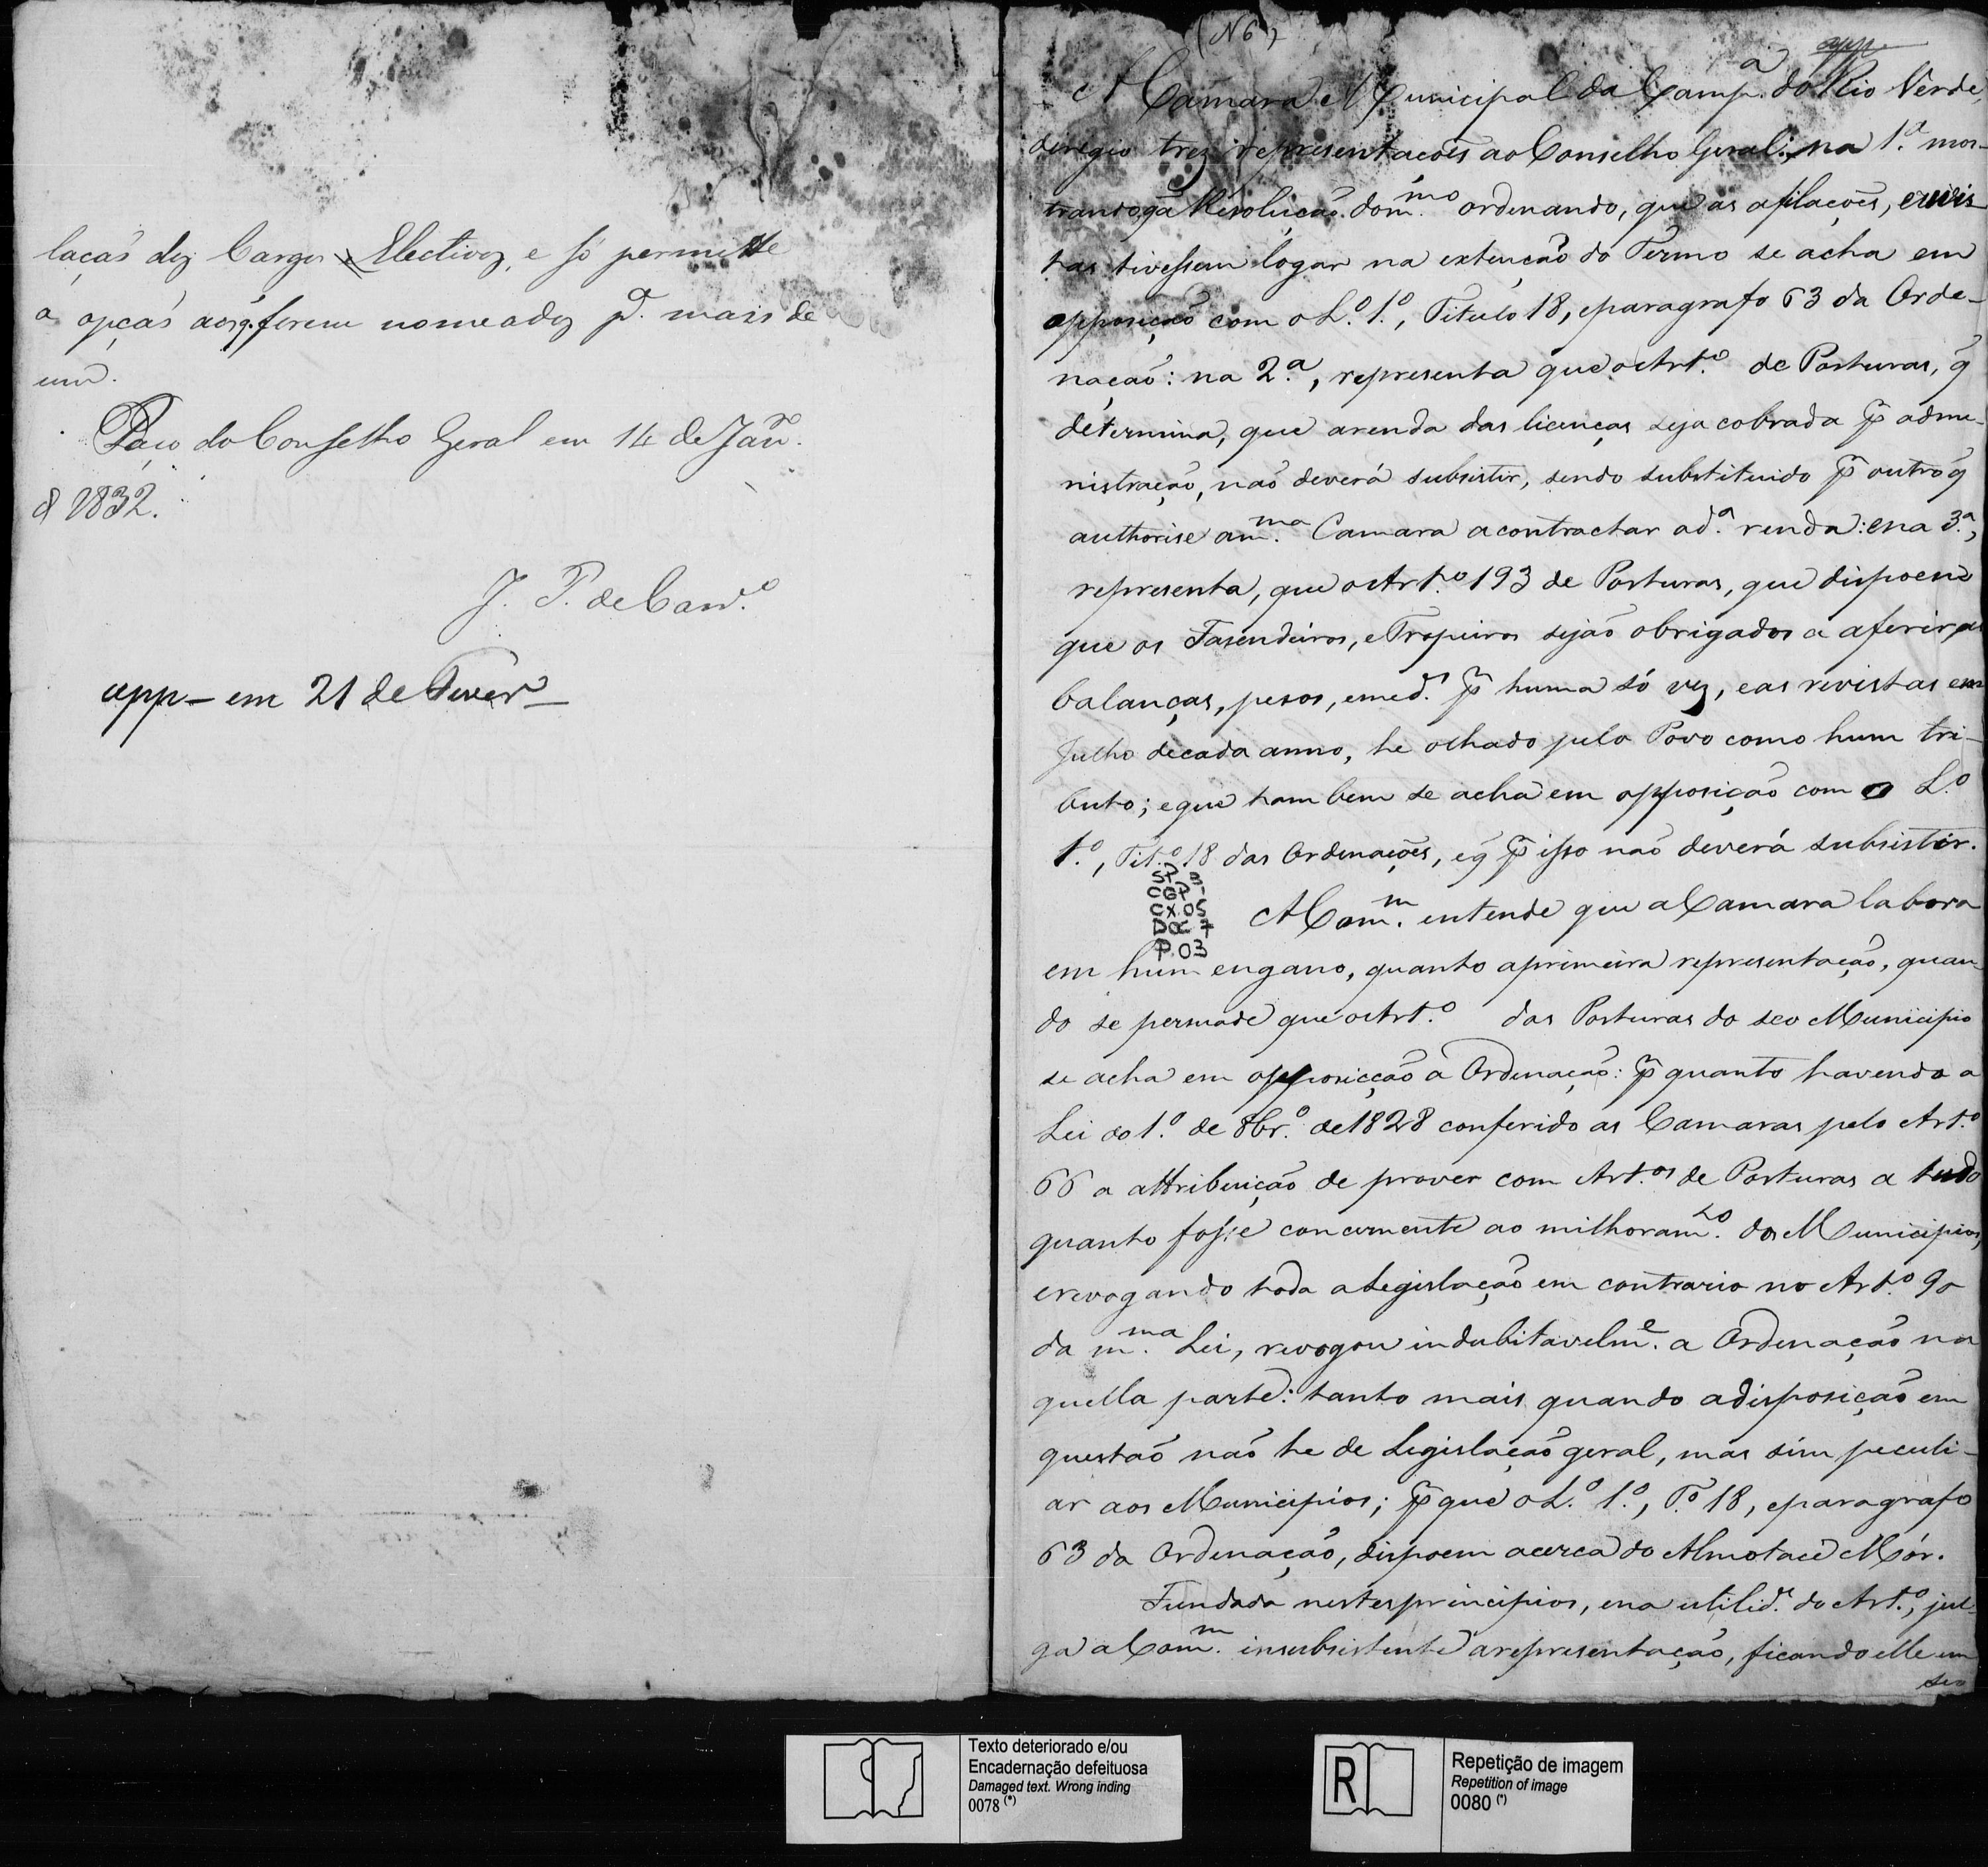 lação dos Cargos Electivos, e só permitte
a opção aos q. forem nomeados pª. mais de
um.
Paço do Conselho Geral em 14 de Janrº.
d 1832.
J. P. de Carv.º
app– em 21 de Fever.º
(N 6)
app.
A Camara Municipal da Camp.ª do Rio Verde,
derigio trez representações ao Conselho Geral: na 1.ª mos-
trando, q̃ a Resolução do m.mo ordenando, que as afilações, e revis-
tas tivessem logar na extenção do Termo se acha em
opposição com o L.º 1.º, Titulo 18, e paragrafo 63 da Orde-
nação: na 2.ª, representa que o Art.º de Posturas, q̃
determina, que a renda das licenças seja cobrada p̃ admi-
nistração, não deverá subsistir, sendo substituido p̃ outro q̃
authorise a m.ma Camara a contractar a d.ª renda: e na 3.ª,
representa, que o Art.º 193 de Posturas, que dispoem
que os Fasendeiros, e Tropeiros sejão obrigados a aferir as
balanças, pesos, e med.as p̃ huma só vez, e as revistas em
Julho de cada anno, he olhado pelo Povo como hum tri-
buto; e que tambem se acha em opposição com o L.º
1.º, Tit.º 18 das Ordenações, e q̃ p̃ isso não deverá subsistir.
SP 3-
CGP-
CX.05
DOC 7
P.03
A Com.m entende que a Camara labora
em hum engano, quanto a primeira representação, quan
do se persuade que o Art.º das Posturas do seo Municipio
se acha em opposicção á Ordenação: p̃ quanto havendo a
Lei do 1.º de 8br.º de 1828 conferido as Camaras pelo Art.º
66 a attribuição de prover com Art.os de Posturas a tudo
quanto fosse concernente ao milhoram.to dos Municipios,
e revogando toda a Legislação em contrario no Art.º 90
da m.ma Lei, revogou indubitavelm.e a Ordenação na
quella parte: tanto mais quando a disposição em
questão não he de Legislação geral, mas sim peculi-
ar aos Municipios; p̃ que o L.º 1.º, T.º 18, e paragrafo
63 da Ordenação, dispoem acerca do Almotacé Mór.
Fundada nestes principios, e na utilid.e do Art.º, jul-
ga a Com.m insubsistente a representação, ficando elle em
seo
Texto deteriorado e/ou
Encadernação defeituosa
Damaged text. Wrong inding
0078 (*)
R
Repetição de imagem
Repetition of image
0080 (*)